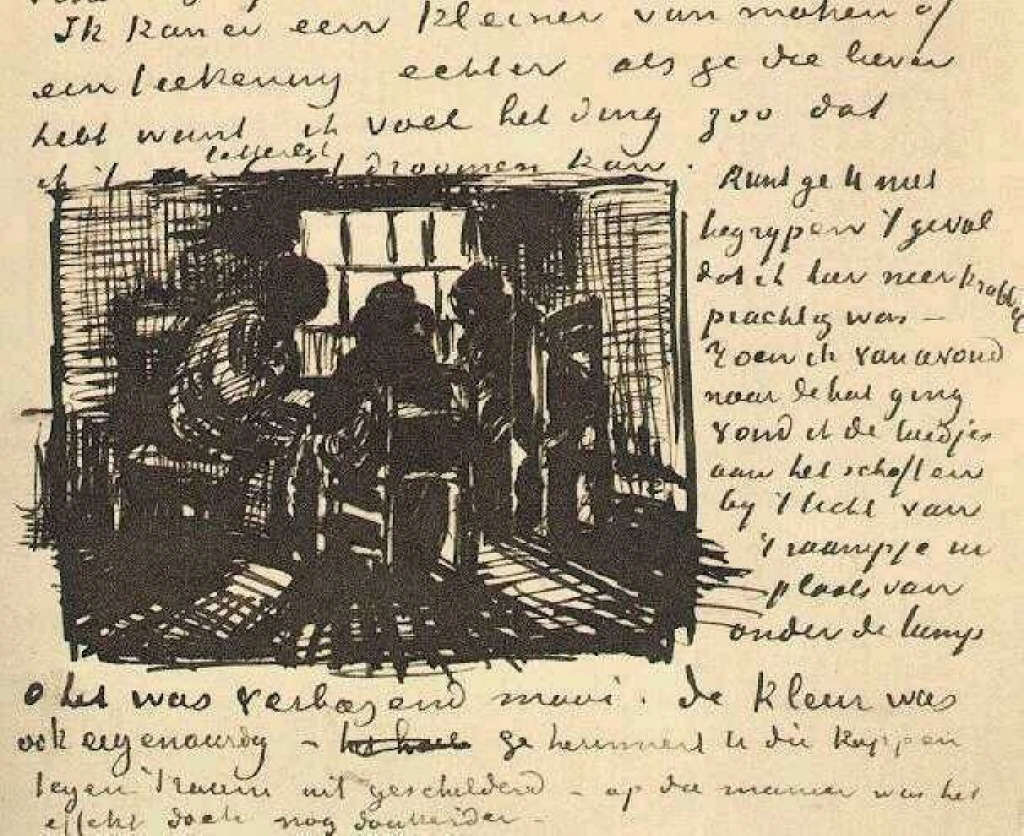 Ik kan er een kleiner van maken of
een teekening echter als ge die liever
hebt want ik voel het ding zoo dat
ik 't letterlijk droomen kan.
Kunt ge U niet
begrypen 't geval
dat ik hier neerkrabbel
prachtig was —
Toen ik van avond
naar de hut ging
vond ik de luidjes
aan het schoften
by 't licht van
't raampje in
plaats van
onder de lamp
O het was verbazend mooi. de kleur was
ook eigenaardig – ge herinnert U die koppen
tegen 't raam uit geschilderd – op die manier was het
effekt doch nog donkerder –